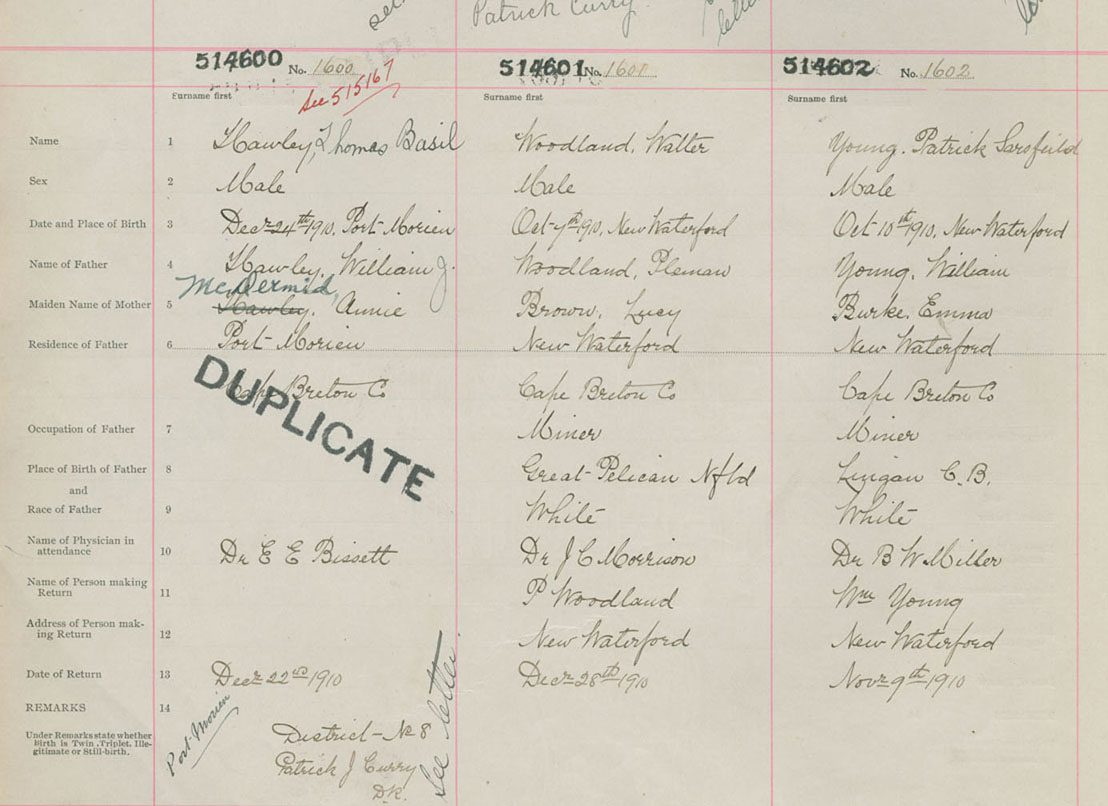 Patrick Curry.
letter
514600 No. 1600 514601 No. 1601 514602 No. 1602
See 515167
Surname first Surname first Surname first
Name 1 Hawley, Thomas Basil Woodland, Walter Young. Patrick Sarsfeild
Sex 2 Male Male Male
Date and Place of Birth 3 Decr 24th 1910. Port-Morien Oct 7th 1910, New Waterford Oct 10th 1910, New Waterford
Name of Father 4 Hawley, William J. Woodland, Pleman Young, William
McDermid,
Maiden Name of Mother 5 Hawley, Annie Brown, Lucy Burke, Emma
Residence of Father 6 Port-Morien New Waterford New Waterford
Cape Breton Co Cape Breton Co Cape Breton Co
DUPLICATE
Occupation of Father 7 Miner Miner
Place of Birth of Father 8 Great-Pelican Nfld Lingan C.B.
and
Race of Father 9 White White
Name of Physician in
attendance 10 Dr E E Bissett Dr J C Morrison Dr B W Miller
Name of Person making
Return 11 P Woodland Wm Young
Address of Person mak-
ing Return 12 New Waterford New Waterford
Date of Return 13 Decr 22nd 1910 Decr 28th 1910 Novr 9th 1910
REMARKS 14
Under Remarks state whether
birth is Twin, Triplet, Ille-
gitimate or Still-birth.
Port-Morien
District-No 8
Patrick J Curry
D.R.
See letter.